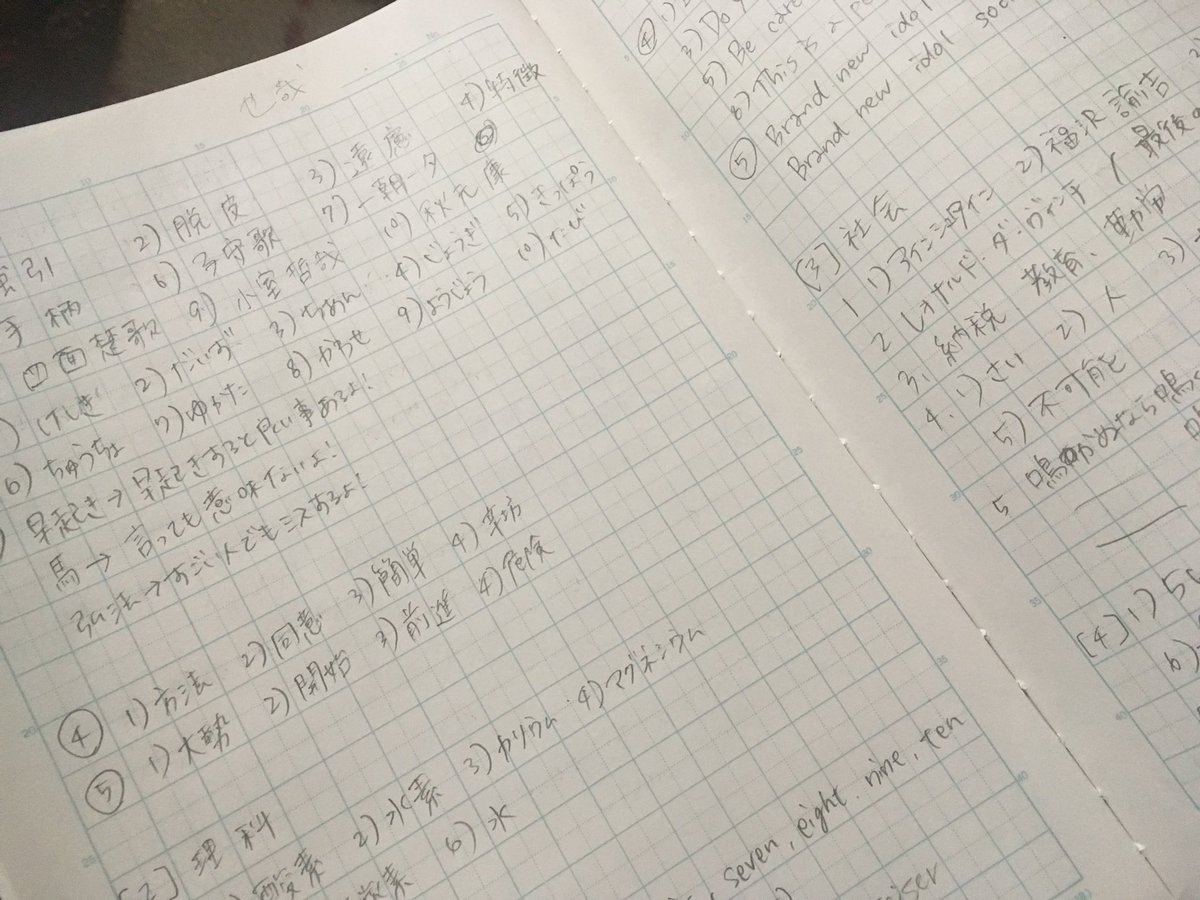 也哉
索引 2) 脱皮 3) 遠慮 4) 特徴
手柄 6) 子守歌 7) 一朝一夕
四面楚歌 9) 小室哲哉 10) 秋元康
けしき 2) だいず 3) ちゅめん 4) じょうぎ 5) きっぽう
6) ちゅうちょ 7) ゆかた 8) かわせ 9) ようじょう 10) たび
早起き→早起きすると良い事あるよ!
馬→言っても意味ないよ!
弘法→すごい人でもミスあるよ!
④ 1) 方法 2) 同意 3) 簡単 4) 辛坊
⑤ 1) 大勢 2) 開始 3) 前進 4) 危険
[2] 理科
酸素 2) 水素 3) カリウム 4) マグネシウム
炭素 6) 水
seven, eight. nine, ten
④ 1)
3) Do
5) Be care
8) This is a pe
⑤ Brand new idol
Brand new idol soci
[3] 社会
1 1) アインシュタイン 2) 福沢諭吉
2 レオナルド・ダ・ヴィンチ (最後の
3. 納税 教育、勤労
4. 1) さい 2) 人 3)
5) 不可能
5 鳴かぬなら鳴
[4] 1) 5
6)